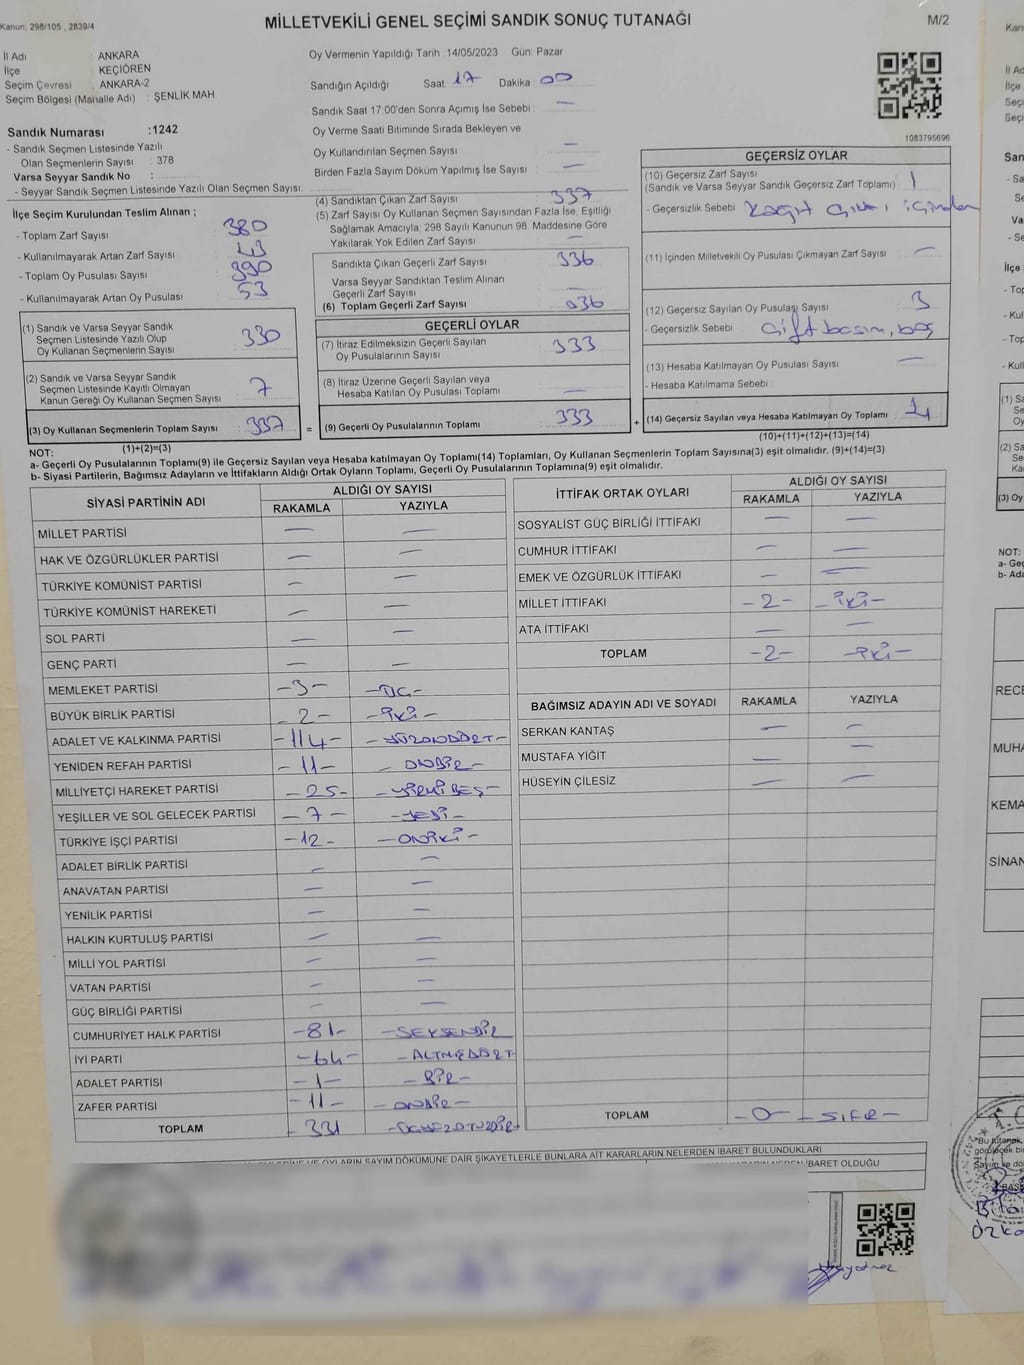 Kanun: 298/105 , 2839/4
MİLLETVEKİLİ GENEL SEÇİMİ SANDIK SONUÇ TUTANAĞI
M/2
İl Adı : ANKARA
İlçe : KEÇİÖREN
Seçim Çevresi : ANKARA-2
Seçim Bölgesi (Mahalle Adı) : ŞENLİK MAH.
Sandık Numarası :1242
- Sandık Seçmen Listesinde Yazılı
Olan Seçmenlerin Sayısı : 378
Varsa Seyyar Sandık No :
- Seyyar Sandık Seçmen Listesinde Yazılı Olan Seçmen Sayısı:
Oy Vermenin Yapıldığı Tarih : 14/05/2023 Gün: Pazar
Sandığın Açıldığı Saat: 17 Dakika: 00
Sandık Saat 17.00'den Sonra Açılmış İse Sebebi : —
Oy Verme Saati Bitiminde Sırada Bekleyen ve
Oy Kullandırılan Seçmen Sayısı : —
Birden Fazla Sayım Döküm Yapılmış İse Sayısı : —
1083795696
İlçe Seçim Kurulundan Teslim Alınan ;
- Toplam Zarf Sayısı : 380
- Kullanılmayarak Artan Zarf Sayısı : 43
- Toplam Oy Pusulası Sayısı : 390
- Kullanılmayarak Artan Oy Pusulası : 53
(1) Sandık ve Varsa Seyyar Sandık
Seçmen Listesinde Yazılı Olup
Oy Kullanan Seçmenlerin Sayısı : 330
(2) Sandık ve Varsa Seyyar Sandık
Seçmen Listesinde Kayıtlı Olmayan
Kanun Gereği Oy Kullanan Seçmen Sayısı : 7
(3) Oy Kullanan Seçmenlerin Toplam Sayısı : 337
(4) Sandıktan Çıkan Zarf Sayısı : 337
(5) Zarf Sayısı Oy Kullanan Seçmen Sayısından Fazla İse, Eşitliği
Sağlamak Amacıyla, 298 Sayılı Kanunun 98. Maddesine Göre
Yakılarak Yok Edilen Zarf Sayısı : —
Sandıkta Çıkan Geçerli Zarf Sayısı : 336
Varsa Seyyar Sandıktan Teslim Alınan
Geçerli Zarf Sayısı : —
(6) Toplam Geçerli Zarf Sayısı : 336
GEÇERLİ OYLAR
(7) İtiraz Edilmeksizin Geçerli Sayılan
Oy Pusulalarının Sayısı : 333
(8) İtiraz Üzerine Geçerli Sayılan veya
Hesaba Katılan Oy Pusulası Toplamı : —
= (9) Geçerli Oy Pusulalarının Toplamı : 333
GEÇERSİZ OYLAR
(10) Geçersiz Zarf Sayısı
(Sandık ve Varsa Seyyar Sandık Geçersiz Zarf Toplamı) : 1
- Geçersizlik Sebebi : Kağıt çıktı içinden
(11) İçinden Milletvekili Oy Pusulası Çıkmayan Zarf Sayısı : —
(12) Geçersiz Sayılan Oy Pusulası Sayısı : 3
- Geçersizlik Sebebi : Çift basım, boş
(13) Hesaba Katılmayan Oy Pusulası Sayısı : —
- Hesaba Katılmama Sebebi :
+ (14) Geçersiz Sayılan veya Hesaba Katılmayan Oy Toplamı : 4
(1)+(2)=(3)
(10)+(11)+(12)+(13)=(14)
NOT:
a- Geçerli Oy Pusulalarının Toplamı(9) ile Geçersiz Sayılan veya Hesaba katılmayan Oy Toplamı(14) Toplamları, Oy Kullanan Seçmenlerin Toplam Sayısına(3) eşit olmalıdır. (9)+(14)=(3)
b- Siyasi Partilerin, Bağımsız Adayların ve İttifakların Aldığı Ortak Oyların Toplamı, Geçerli Oy Pusulalarının Toplamına(9) eşit olmalıdır.
SİYASİ PARTİNİN ADI ALDIĞI OY SAYISI
RAKAMLA YAZIYLA
MİLLET PARTİSİ — —
HAK VE ÖZGÜRLÜKLER PARTİSİ — —
TÜRKİYE KOMÜNİST PARTİSİ — —
TÜRKİYE KOMÜNİST HAREKETİ — —
SOL PARTİ — —
GENÇ PARTİ — —
MEMLEKET PARTİSİ -3- -ÜÇ-
BÜYÜK BİRLİK PARTİSİ -2- -İKİ-
ADALET VE KALKINMA PARTİSİ -114- -YÜZONDÖRT-
YENİDEN REFAH PARTİSİ -11- -ONBİR-
MİLLİYETÇİ HAREKET PARTİSİ -25- -YİRMİBEŞ-
YEŞİLLER VE SOL GELECEK PARTİSİ -7- -YEDİ-
TÜRKİYE İŞÇİ PARTİSİ -12- -ONİKİ-
ADALET BİRLİK PARTİSİ — —
ANAVATAN PARTİSİ — —
YENİLİK PARTİSİ — —
HALKIN KURTULUŞ PARTİSİ — —
MİLLİ YOL PARTİSİ — —
VATAN PARTİSİ — —
GÜÇ BİRLİĞİ PARTİSİ — —
CUMHURİYET HALK PARTİSİ -81- -SEKSENBİR
İYİ PARTİ -64- -ALTMIŞDÖRT-
ADALET PARTİSİ -1- -BİR-
ZAFER PARTİSİ -11- -ONBİR-
TOPLAM -331 -ÜÇYÜZOTUZBİR-
İTTİFAK ORTAK OYLARI ALDIĞI OY SAYISI
RAKAMLA YAZIYLA
SOSYALİST GÜÇ BİRLİĞİ İTTİFAKI — —
CUMHUR İTTİFAKI — —
EMEK VE ÖZGÜRLÜK İTTİFAKI — —
MİLLET İTTİFAKI -2- -İKİ-
ATA İTTİFAKI — —
TOPLAM -2- -İKİ-
BAĞIMSIZ ADAYIN ADI VE SOYADI RAKAMLA YAZIYLA
SERKAN KANTAŞ — —
MUSTAFA YİĞİT — —
HÜSEYİN ÇİLESİZ — —
TOPLAM -0- -SIFIR-
OYLARIN SAYIM DÖKÜMÜNE DAİR ŞİKAYETLERLE BUNLARA AİT KARARLARIN NELERDEN İBARET BULUNDUKLARI
İBARET OLDUĞU